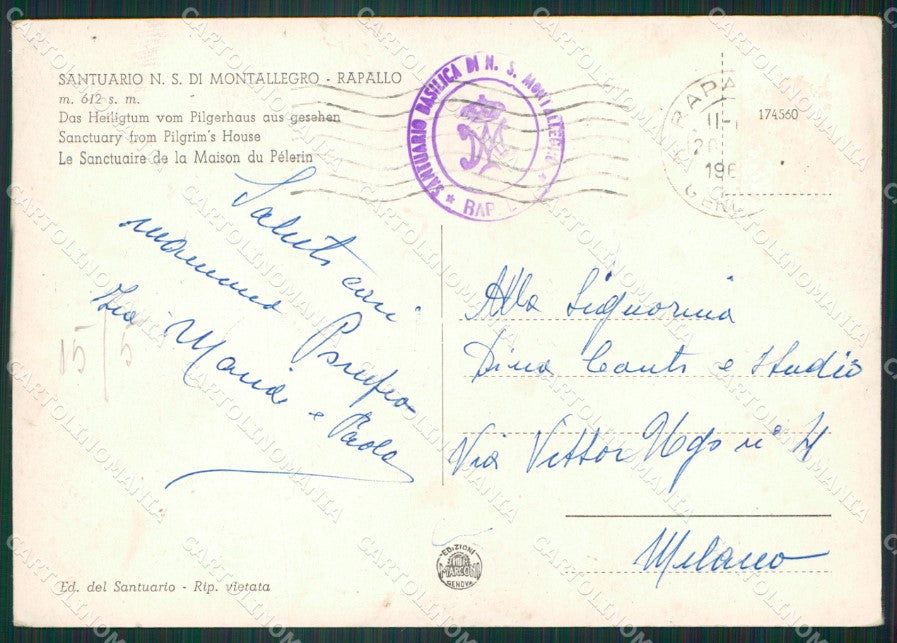 SANTUARIO N. S. DI MONTALLEGRO - RAPALLO
m. 612 s. m.
Das Heiligtum vom Pilgerhaus aus gesehen
Sanctuary from Pilgrim's House
Le Sanctuaire de la Maison du Pélerin
SANTUARIO BASILICA DI N. S. MONTALLEGRO
RAPAL
RAPA
II-
196
GENO
174560
Saluti cari
mamma
Zia Maria e Paola
15/5
Alla Signorina
Dina e Studio
Via Vittor Ugo n° 4
Milano
EDIZIONI
MARCONI
GENOVA
Ed. del Santuario - Rip. vietata
CARTOLINOMANIA